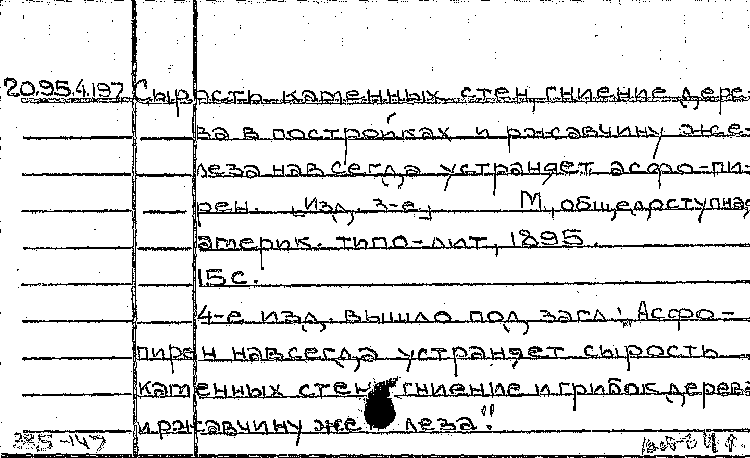 20.95.4.197 Сырость каменных стен, гниение дере-
ва в постройках и ржавчину же-
леза навсегда устраняет асфо-пи-
рен. Изд. 3-е, М, общедоступная
америк. типо-лит, 1895.
15 с.
4-е изд. вышло под загл: Асфо-
пирен навсегда устраняет сырость
каменных стен гниение и грибок дерева
и ржавчину железа"
335-147